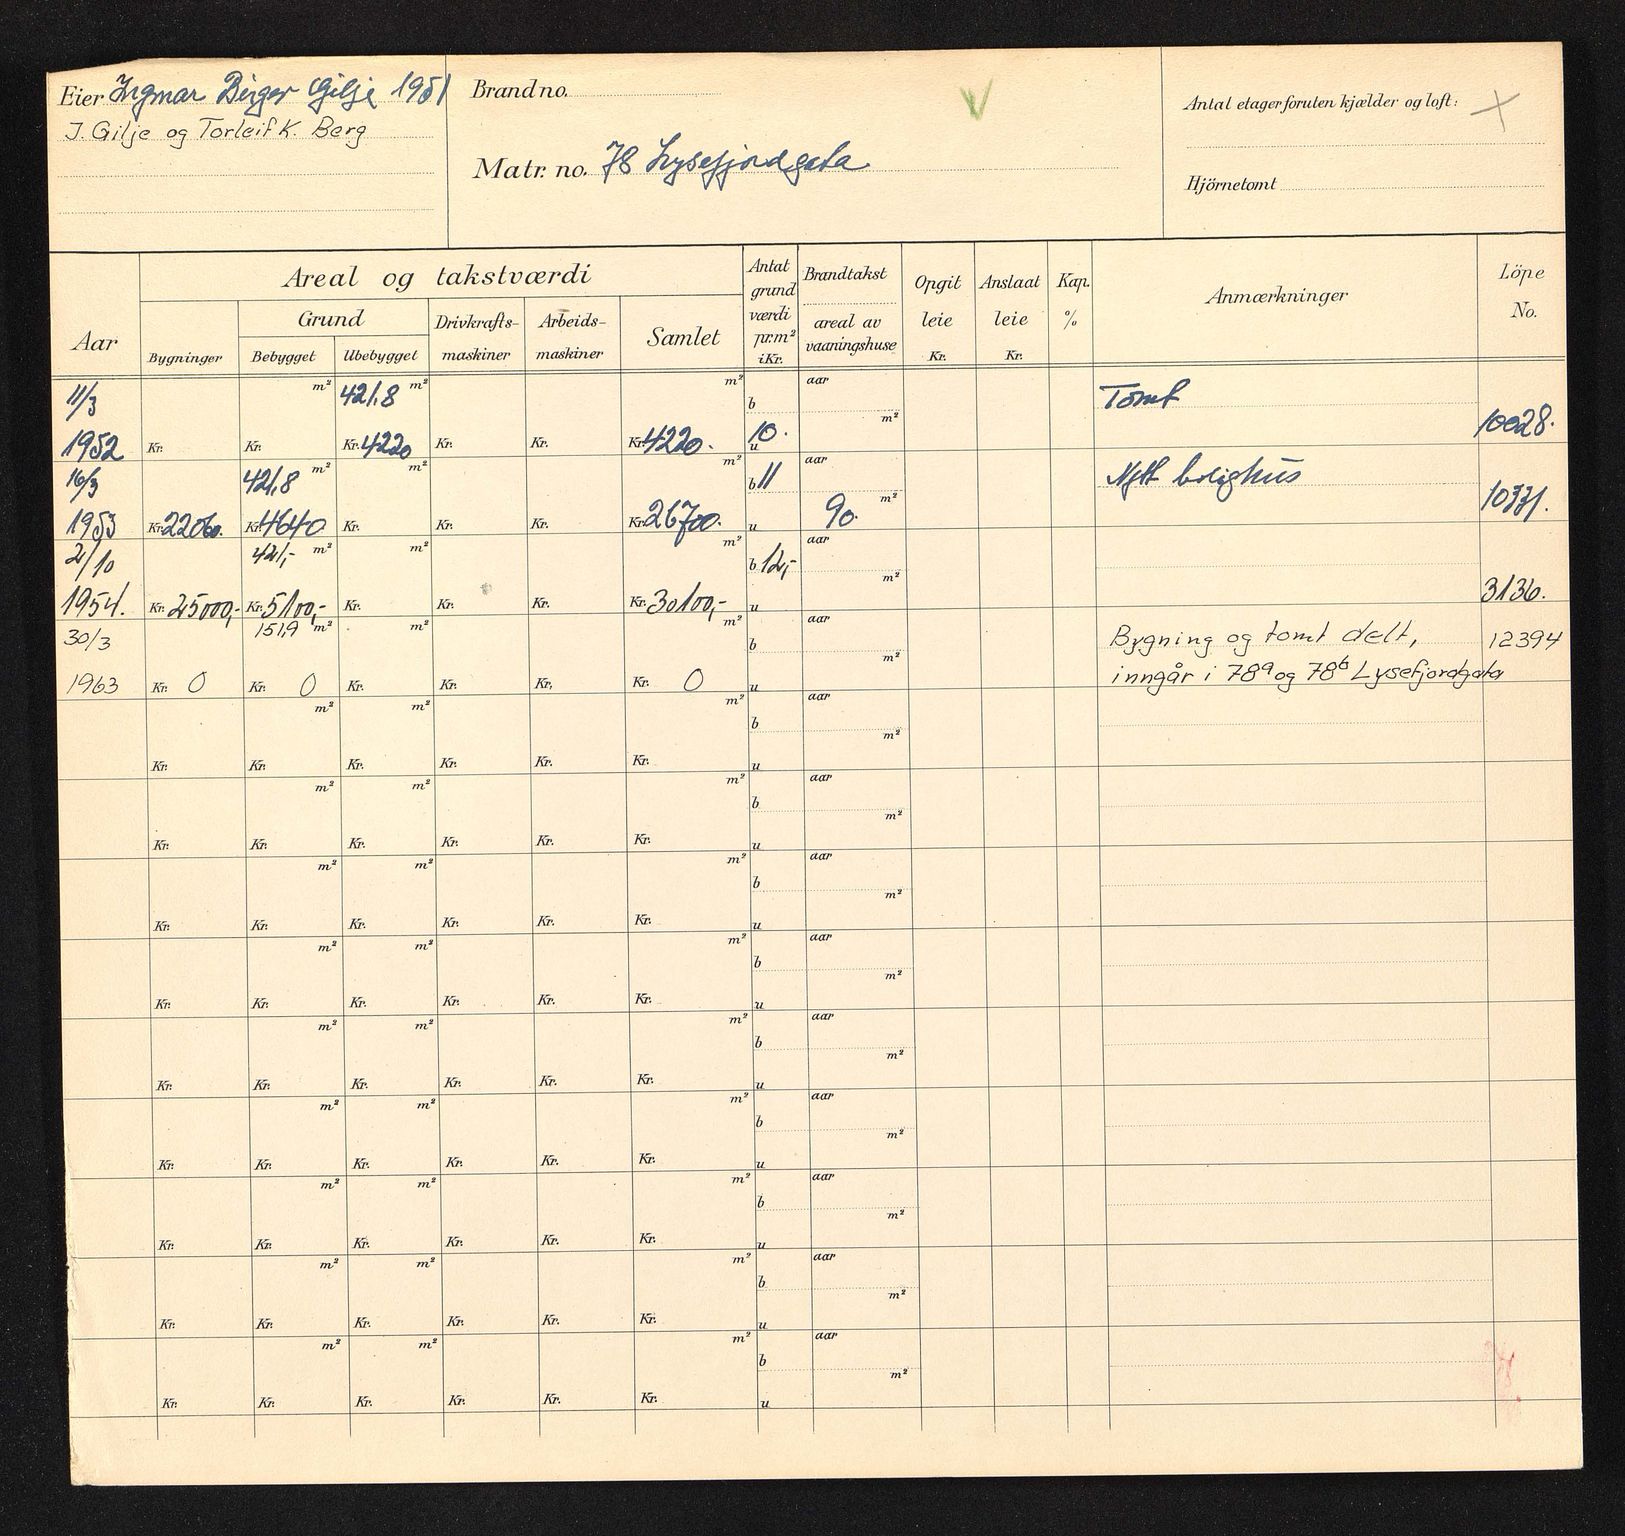 Eier Ingmar Birger Gilje 1951
J. Gilje og Torleif K. Berg
Brand no.
Matr. no. 78 Lysefjordgata
Antal etager foruten kjælder og loft:
Hjörnetomt
Aar
Areal og takstværdi
Bygninger
Grund
Bebygget Ubebygget
Drivkrafts-
maskiner
Arbeids-
maskiner
Samlet
Antat
grund
værdi
pr. m²
i Kr.
Brandtakst
areal av
vaaningshuse
Opgit
leie
Kr.
Anslaat
leie
Kr.
Kap.
%
Anmærkninger
Löpe
No.
11/3 m² 421.8 m² m² b aar m² Tomt
1952 Kr. Kr. Kr. 4220 Kr. Kr. Kr. 4220. 10. u 10028.
16/3 421,8 m² m² m² b 11 aar m² Nytt bolighus
1953 Kr. 22060. Kr. 4640 Kr. Kr. Kr. Kr. 26700. u 90. 10371.
2/10 421,- m² m² m² b 12,- aar m²
1954. Kr. 25000,- Kr. 5100,- Kr. Kr. Kr. Kr. 30100,- u 3136.
30/3 151,9 m² m² m² b aar m² Bygning og tomt delt, 12394
1963 Kr. 0 Kr. 0 Kr. Kr. Kr. Kr. 0 u inngår i 78a og 78b Lysefjordgata
m² m² m² b aar m²
Kr. Kr. Kr. Kr. Kr. Kr. u
m² m² m² b aar m²
Kr. Kr. Kr. Kr. Kr. Kr. u
m² m² m² b aar m²
Kr. Kr. Kr. Kr. Kr. Kr. u
m² m² m² b aar m²
Kr. Kr. Kr. Kr. Kr. Kr. u
m² m² m² b aar m²
Kr. Kr. Kr. Kr. Kr. Kr. u
m² m² m² b aar m²
Kr. Kr. Kr. Kr. Kr. Kr. u
m² m² m² b aar m²
Kr. Kr. Kr. Kr. Kr. Kr. u
m² m² m² b aar m²
Kr. Kr. Kr. Kr. Kr. Kr. u
m² m² m² b aar m²
Kr. Kr. Kr. Kr. Kr. Kr. u